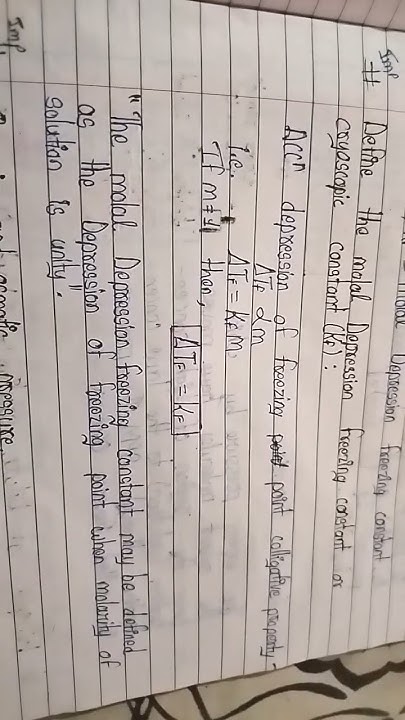 Depression freezing constant
Imp
# Define the molal Depression freezing constant or
cryoscopic constant (KF):
Accⁿ depression of freezing point colligative property-
ΔTF ∝ m
i.e. ΔTF = KF m
If m = 1 then, ΔTF = KF
"The molal Depression freezing constant may be defined
as the Depression of freezing point when molarity of
solution is unity".
Imp
pressure